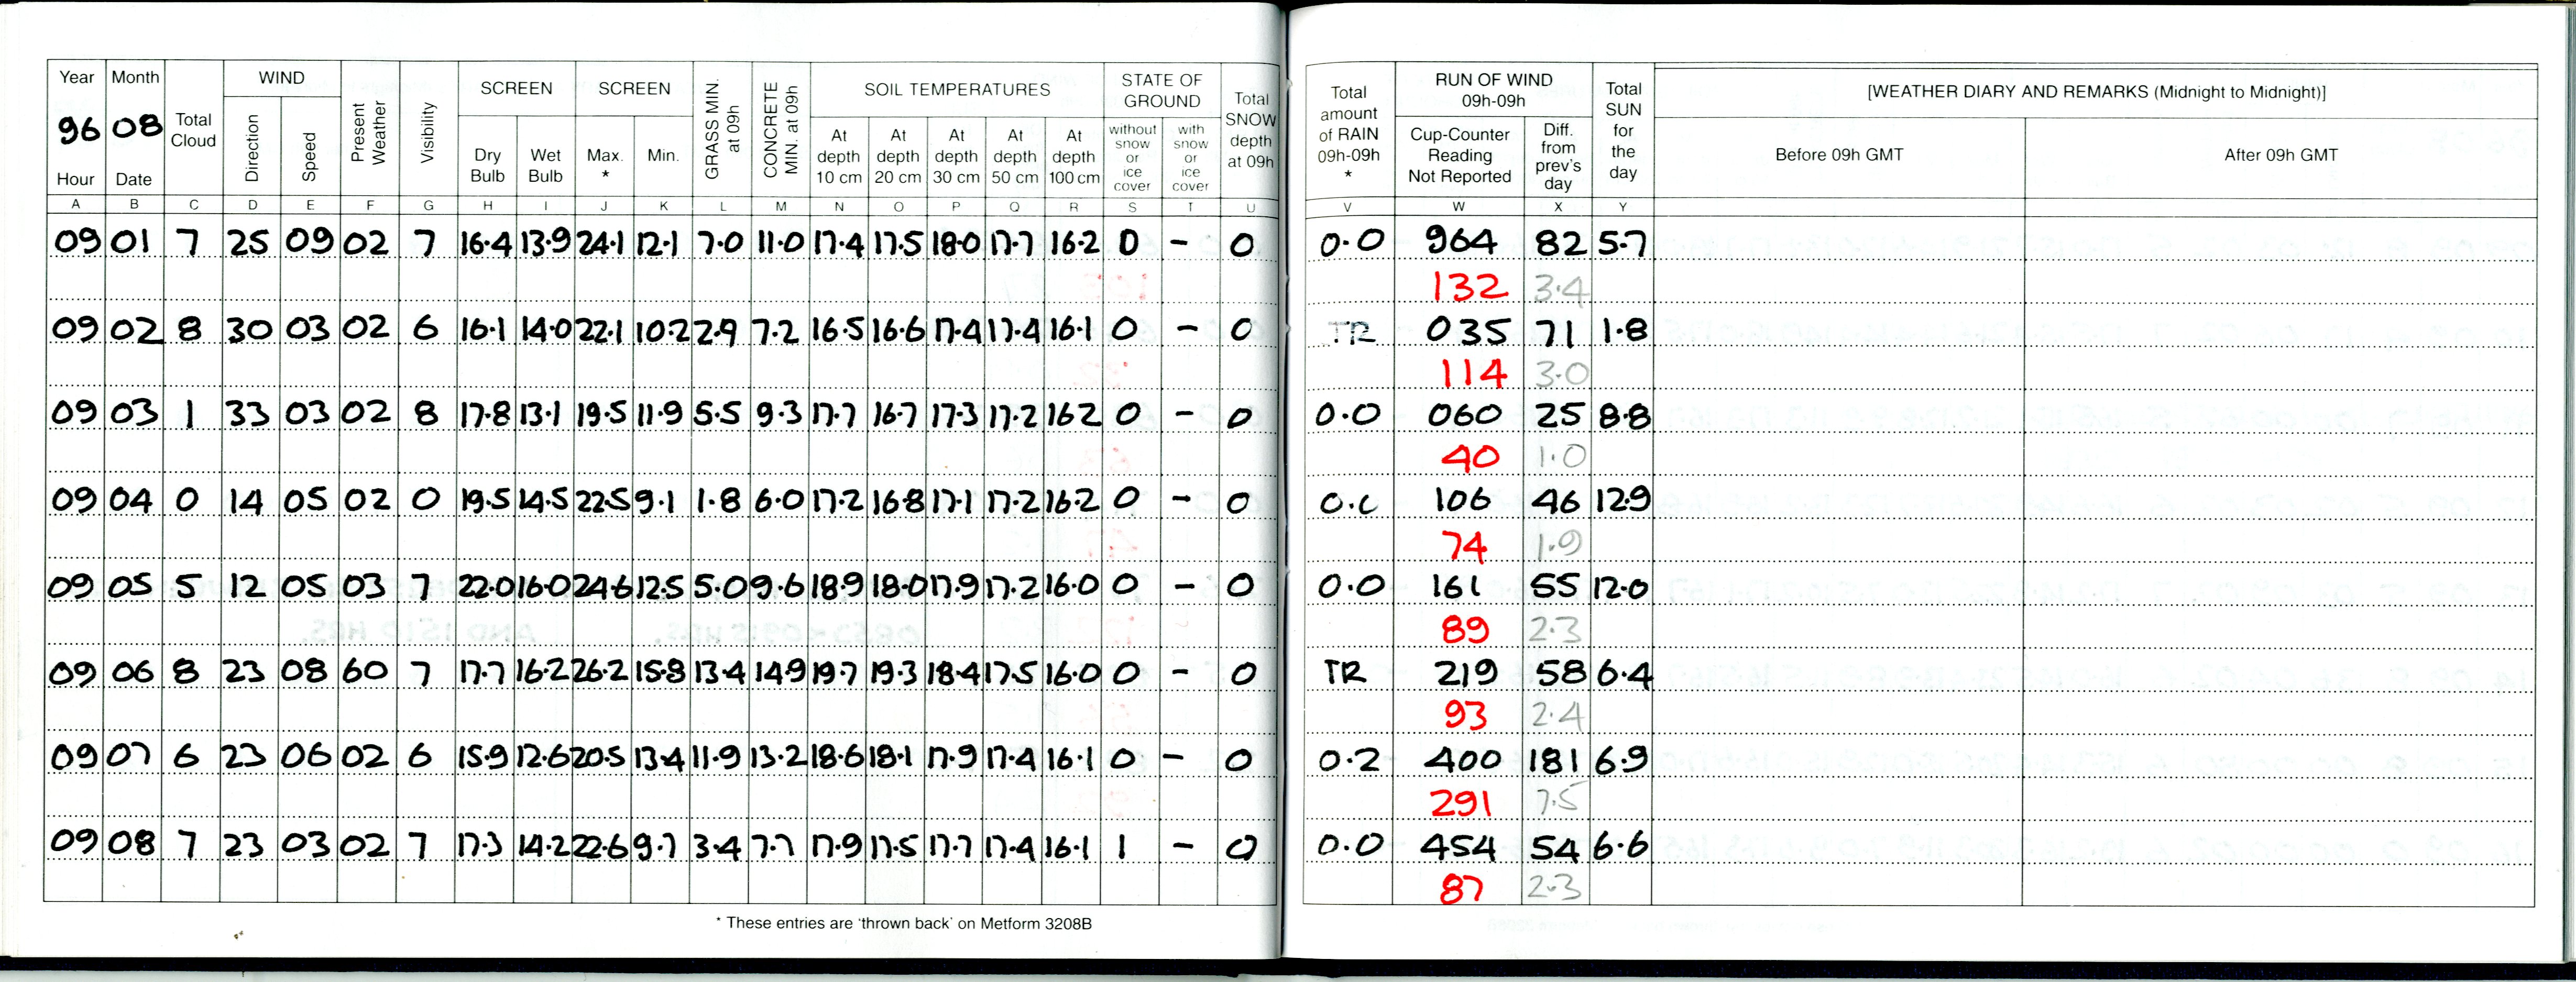 Year Month Total Cloud WIND Present Weather Visibility SCREEN SCREEN GRASS MIN. at 09h CONCRETE MIN. at 09h SOIL TEMPERATURES STATE OF GROUND Total SNOW depth at 09h Total amount of RAIN 09h-09h * RUN OF WIND 09h-09h Total SUN for the day [WEATHER DIARY AND REMARKS (Midnight to Midnight)]
96 08
Hour Date Direction Speed Dry Bulb Wet Bulb Max. * Min. At depth 10 cm At depth 20 cm At depth 30 cm At depth 50 cm At depth 100 cm without snow or ice cover with snow or ice cover Cup-Counter Reading Not Reported Diff. from prev's day Before 09h GMT After 09h GMT
A B C D E F G H I J K L M N O P Q R S T U V W X Y
09 01 7 25 09 02 7 16.4 13.9 24.1 12.1 7.0 11.0 17.4 17.5 18.0 17.7 16.2 0 - 0 0.0 964 82 5.7
132 3.4
09 02 8 30 03 02 6 16.1 14.0 22.1 10.2 2.9 7.2 16.5 16.6 17.4 17.4 16.1 0 - 0 TR 035 71 1.8
114 3.0
09 03 1 33 03 02 8 17.8 13.1 19.5 11.9 5.5 9.3 17.7 16.7 17.3 17.2 162 0 - 0 0.0 060 25 8.8
40 1.0
09 04 0 14 05 02 0 19.5 14.5 22.5 9.1 1.8 6.0 17.2 16.8 17.1 17.2 16.2 0 - 0 0.0 106 46 12.9
74 1.9
09 05 5 12 05 03 7 22.0 16.0 24.6 12.5 5.0 9.6 18.9 18.0 17.9 17.2 16.0 0 - 0 0.0 161 55 12.0
89 2.3
09 06 8 23 08 60 7 17.7 16.2 26.2 15.8 13.4 14.9 19.7 19.3 18.4 17.5 16.0 0 - 0 TR 219 58 6.4
93 2.4
09 07 6 23 06 02 6 15.9 12.6 20.5 13.4 11.9 13.2 18.6 18.1 17.9 17.4 16.1 0 - 0 0.2 400 181 6.9
291 7.5
09 08 7 23 03 02 7 17.3 14.2 22.6 9.7 3.4 7.7 17.9 17.5 17.7 17.4 16.1 1 - 0 0.0 454 54 6.6
87 2.3
* These entries are 'thrown back' on Metform 3208B